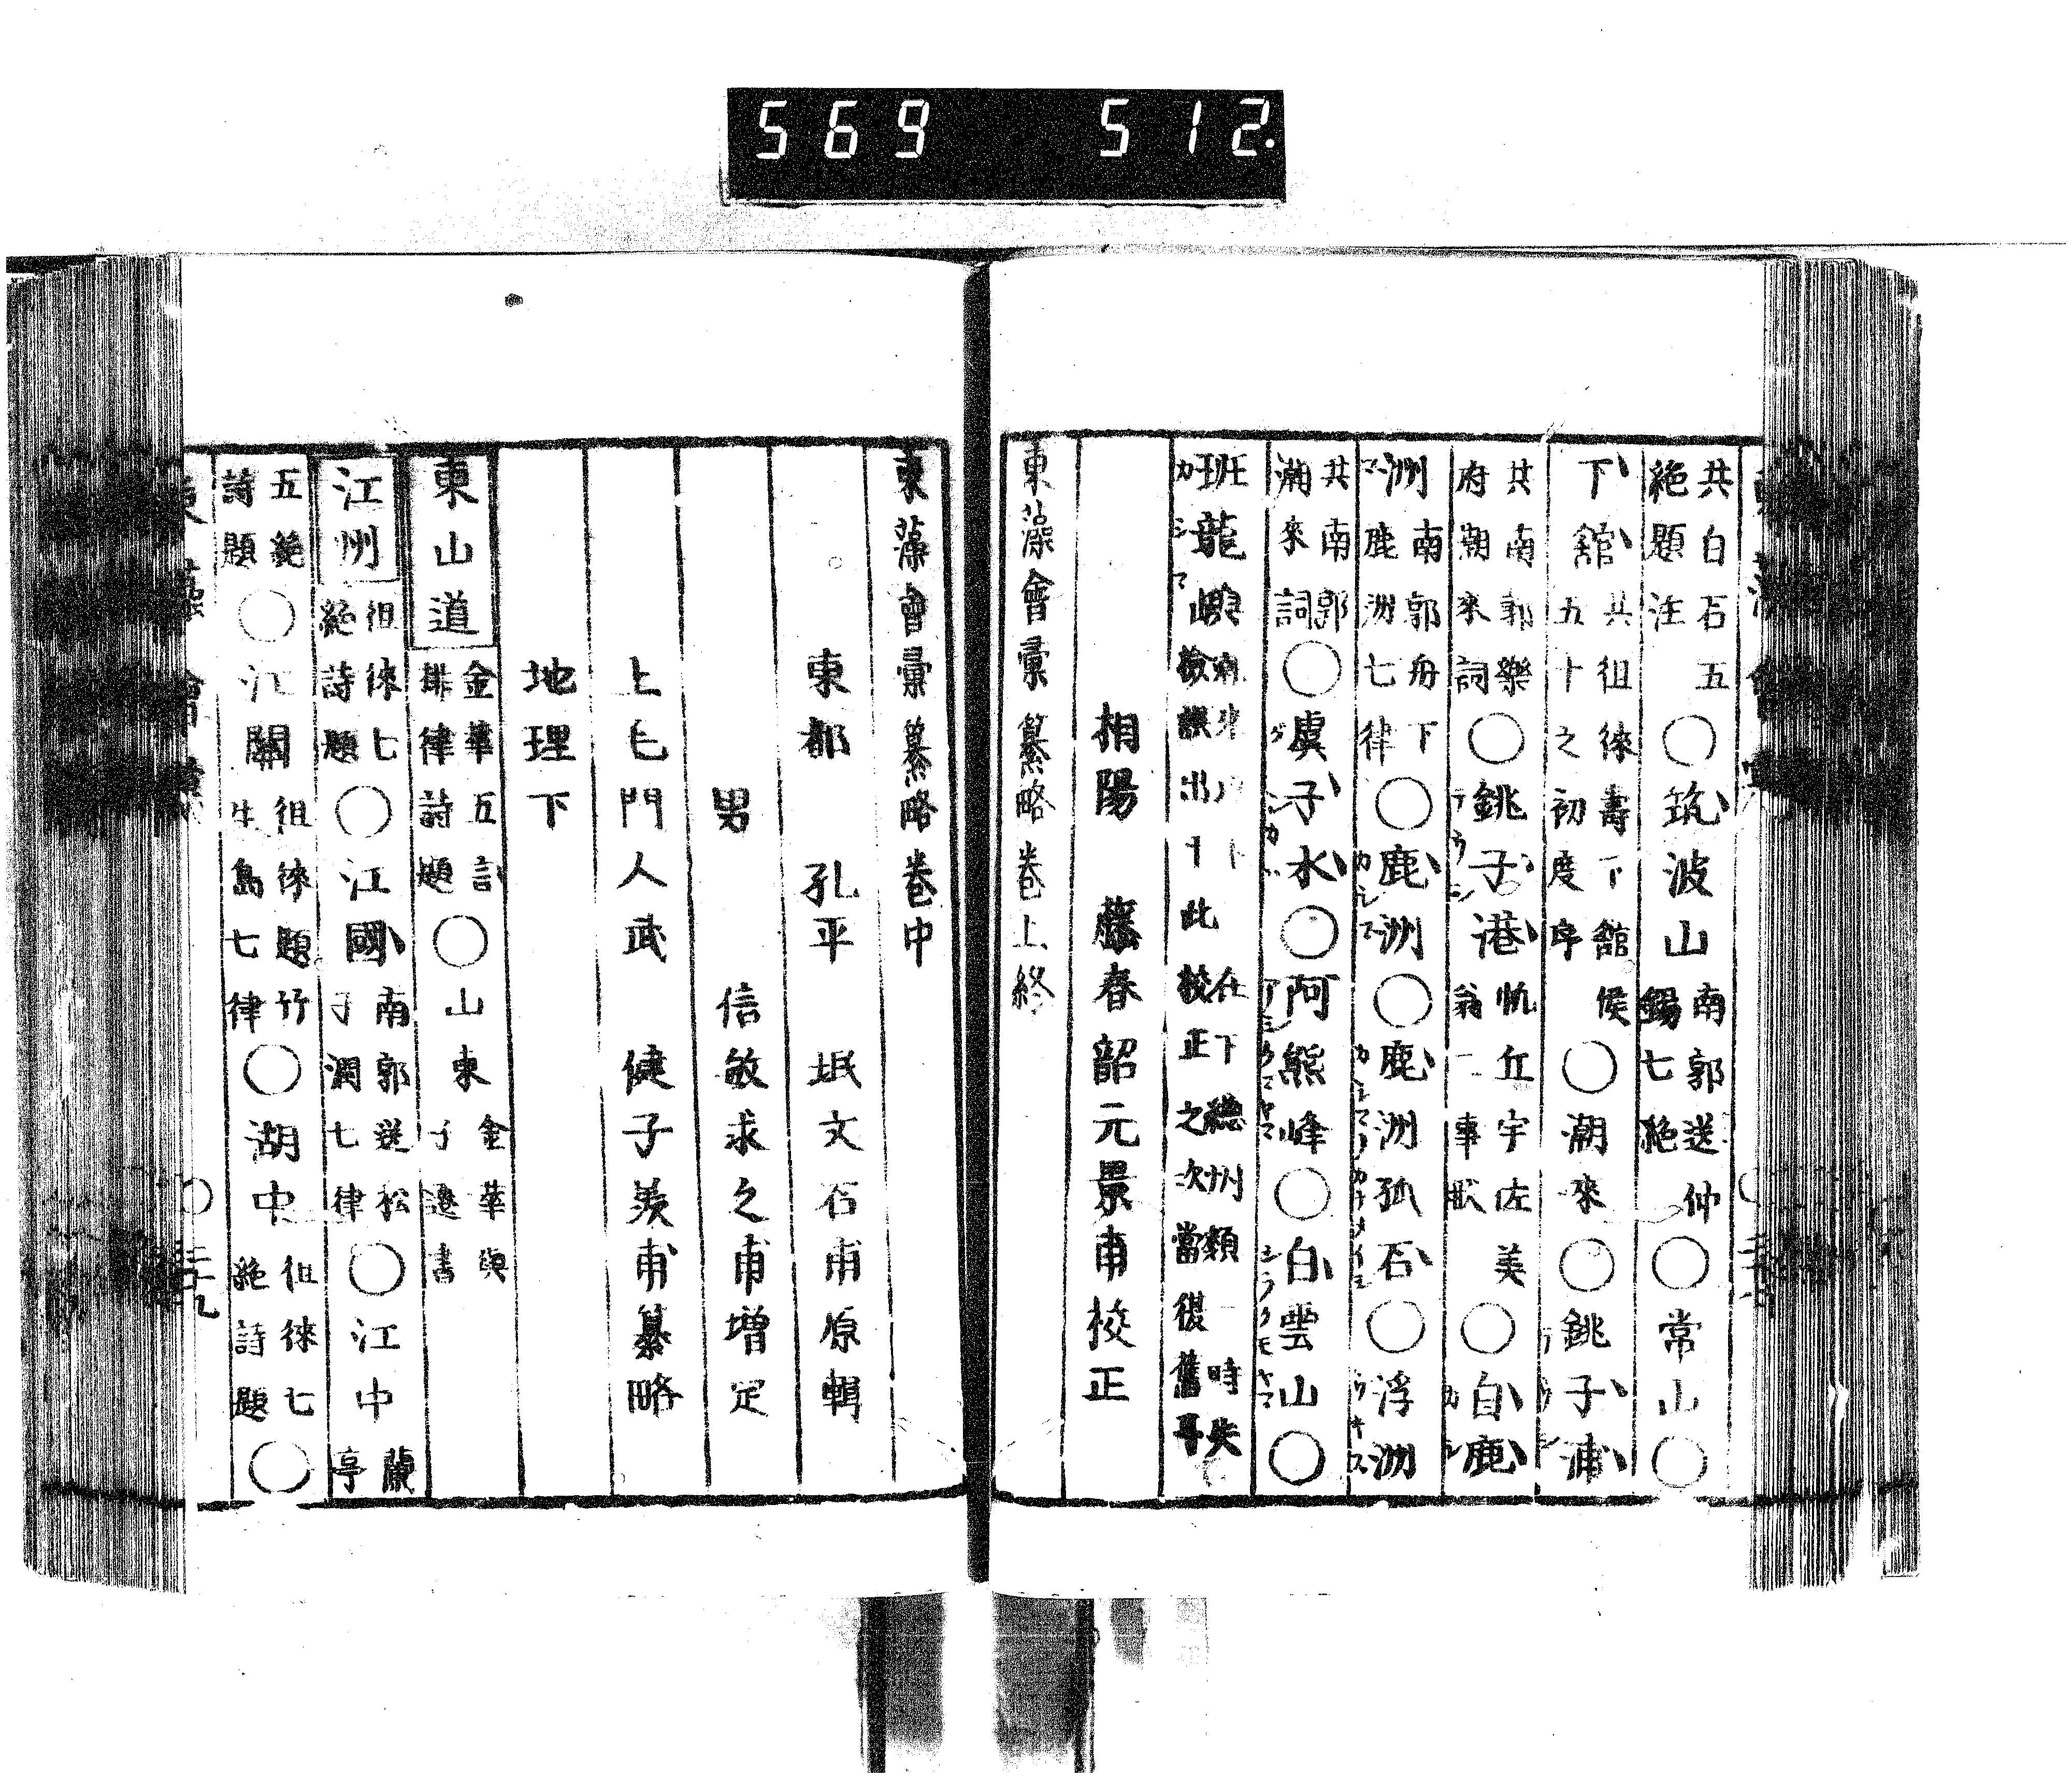 569 512.
共白石五
絶題注
○筑波山
南郭送仲
錫七絶
○常山○
下館
共徂徠壽下舘侯
五十之初度序
○潮來○銚子浦
共南郭樂
府潮來詞
○銚子港
忼丘宇佐美
翁一事狀
○白鹿
洲
南郭舟下
鹿洲七律
○鹿洲○鹿洲孤石○浮洲
共南郭
潮來詞
○虞子水○阿熊峰○白雲山○
班龍
下總州類一時失
撿誤出于此校正之次當復舊耳
相陽 藤春韶元景甫校正
東藻會彙纂略卷上終
東藻會彙纂略卷中
東都 孔平 珉文石甫原輯
男 信敏求之甫增定
上毛門人武 健子羨甫纂略
地理下
東山道
金華五言
排律詩題
○山東
金華與
子遷書
江州
徂徠七
絶詩題
○江國
南郭送松
子潤七律
○江中
蘭
亭
五絶
詩題
○江關
徂徠題竹
生島七律
○湖中
徂徠七
絶詩題
○